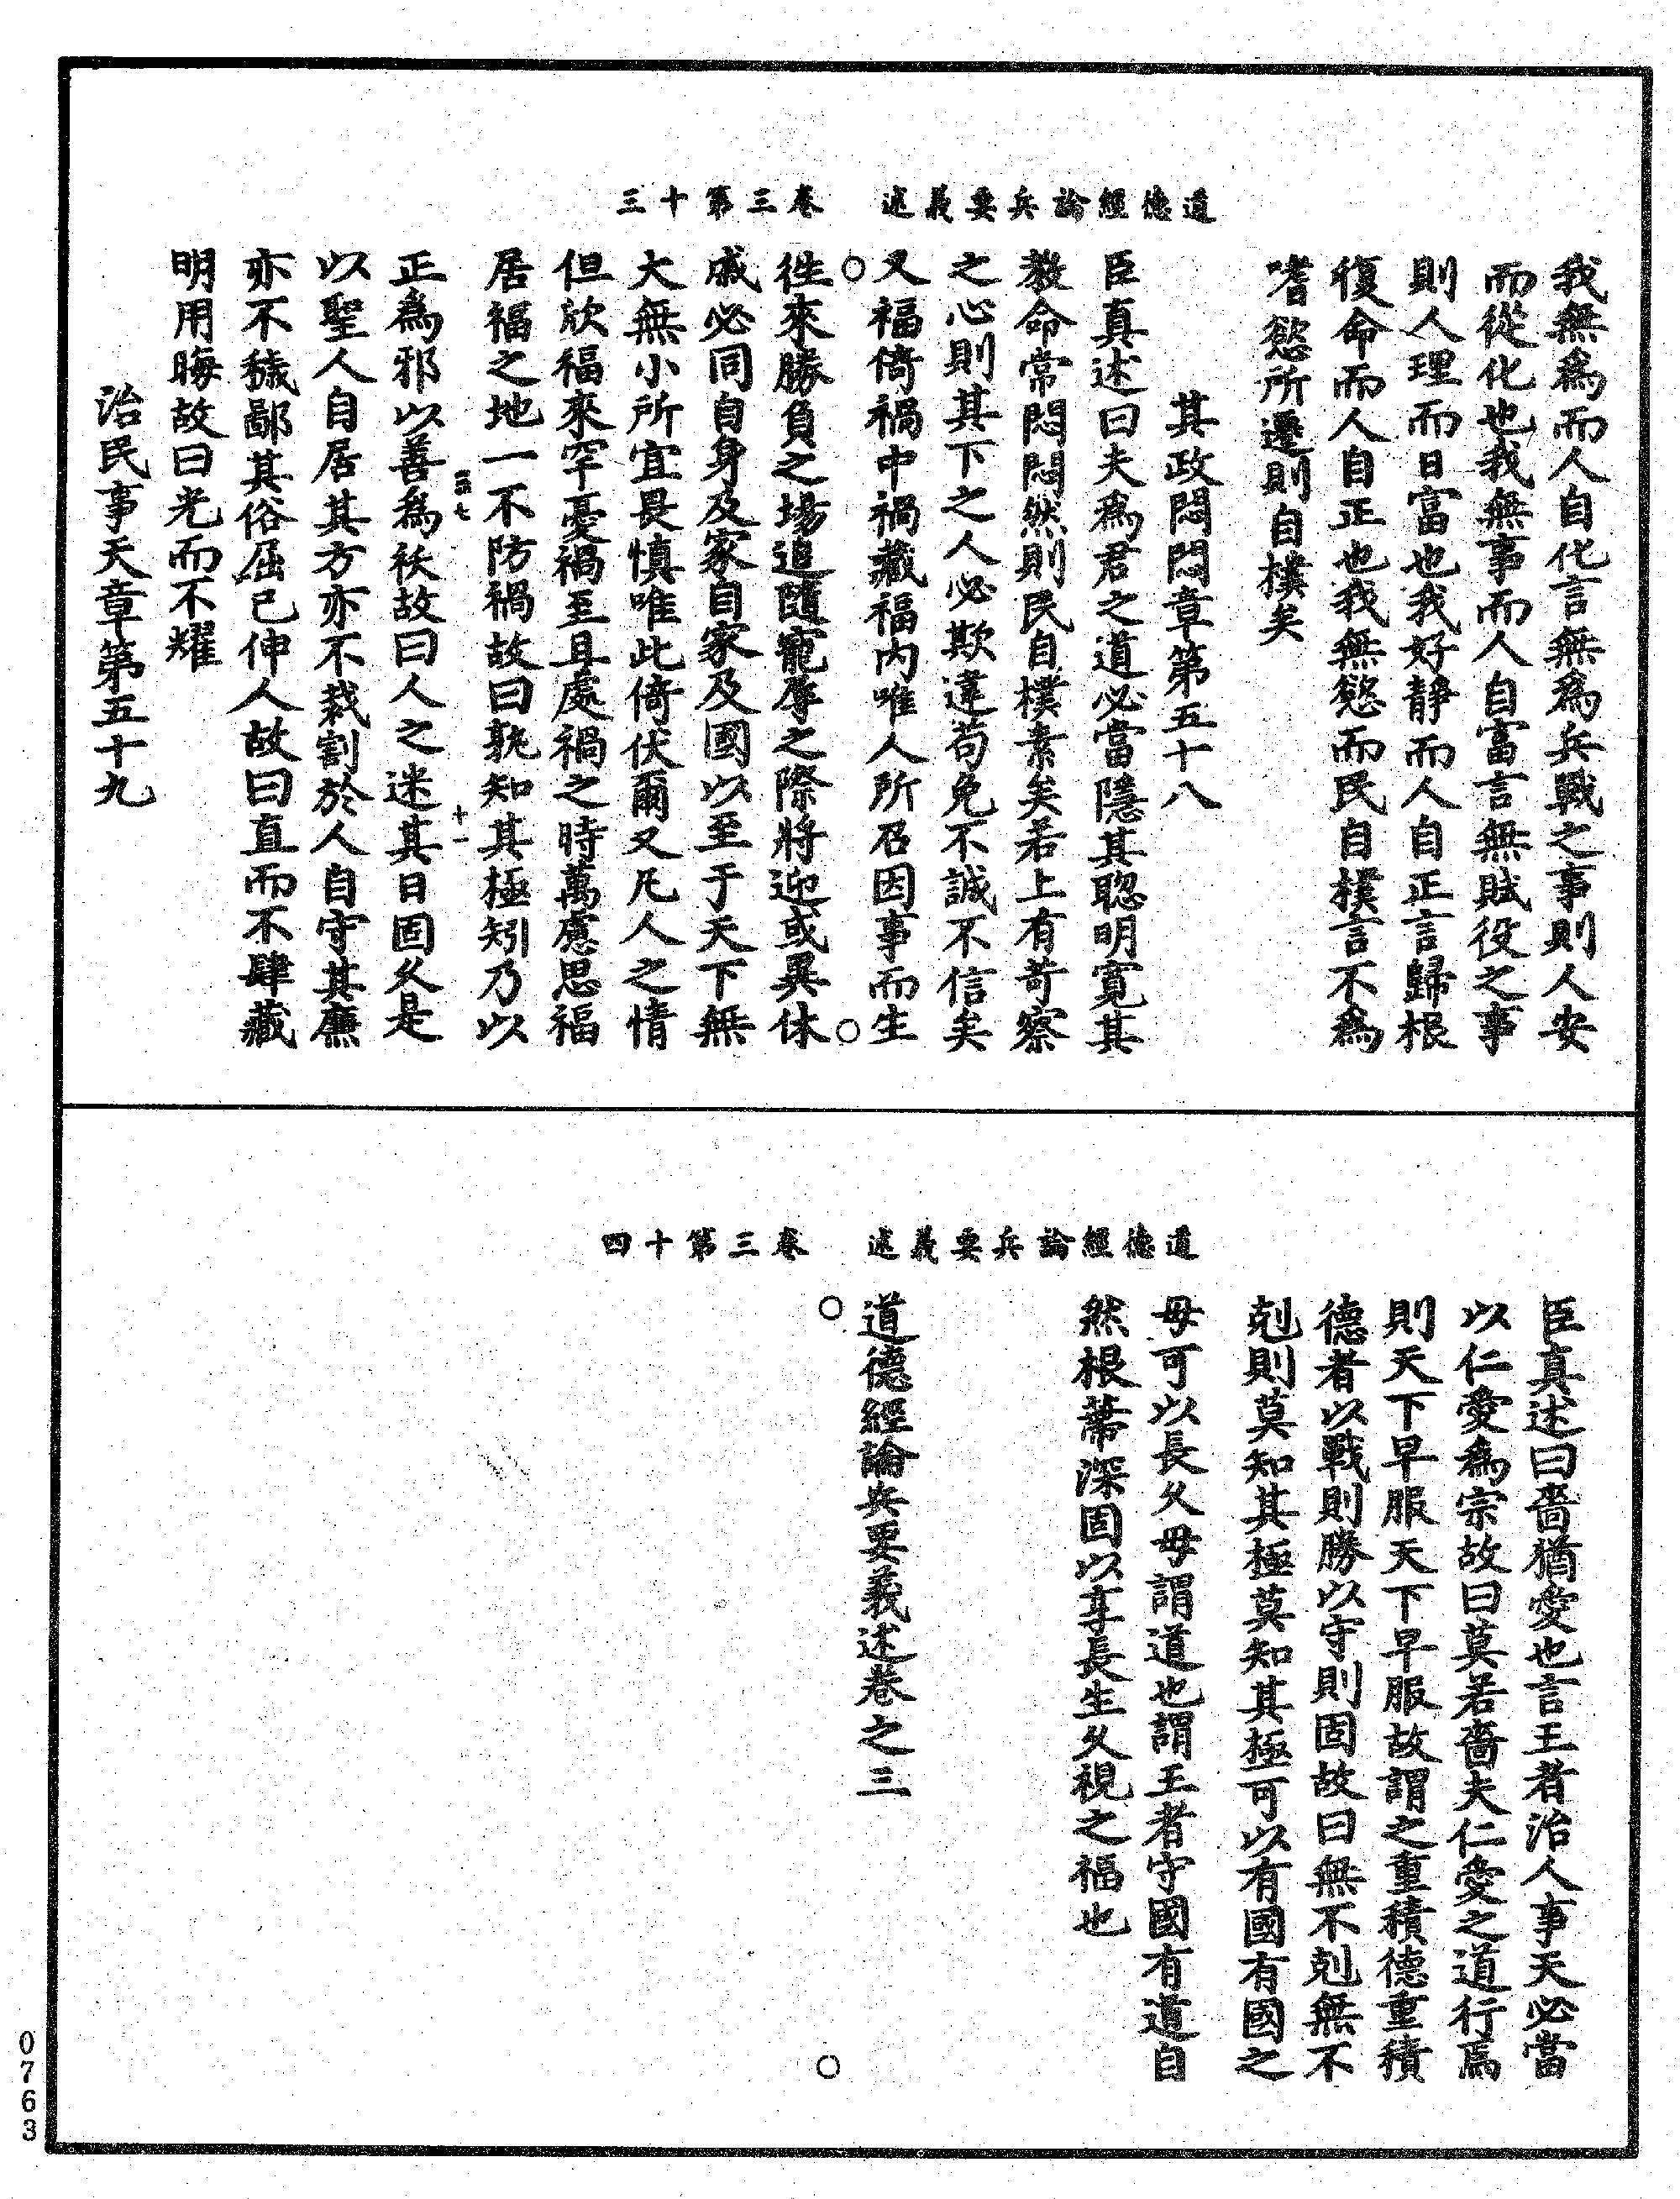 道德經論兵要義述　卷三第十三
我無爲而人自化言無爲兵戰之事則人安
而從化也我無事而人自富言無賦役之事
則人理而日富也我好静而人自正言歸根
復命而人自正也我無慾而民自樸言不爲
嗜慾所遷則自樸矣
其政悶悶章第五十八
臣真述曰夫爲君之道必當隱其聦明寛其
教命常悶悶然則民自樸素矣若上有苛察
之心則其下之人必欺違苟免不誠不信矣
又福倚禍中禍藏福内唯人所召因事而生
徃來勝負之場追隨寵辱之際將迎或異休
戚必同自身及家自家及國以至于天下無
大無小所宜畏慎唯此倚伏爾又凡人之情
但欣福來罕憂禍至且處禍之時萬慮思福
居福之地一不防禍故曰孰知其極矧乃以
十一
正爲邪以善爲祅故曰人之迷其日固久是
以聖人自居其方亦不裁割於人自守其廉
亦不穢鄙其俗屈己伸人故曰直而不肆藏
明用晦故曰光而不耀
治民事天章第五十九
道德經論兵要義述　卷三第十四
臣真述曰嗇猶愛也言王者治人事天必當
以仁愛爲宗故曰莫若嗇夫仁愛之道行焉
則天下早服天下早服故謂之重積德重積
德者以戰則勝以守則固故曰無不剋無不
剋則莫知其極莫知其極可以有國有國之
母可以長久母謂道也謂王者守國有道自
然根蔕深固以享長生久視之福也
道德經論兵要義述卷之三
0763